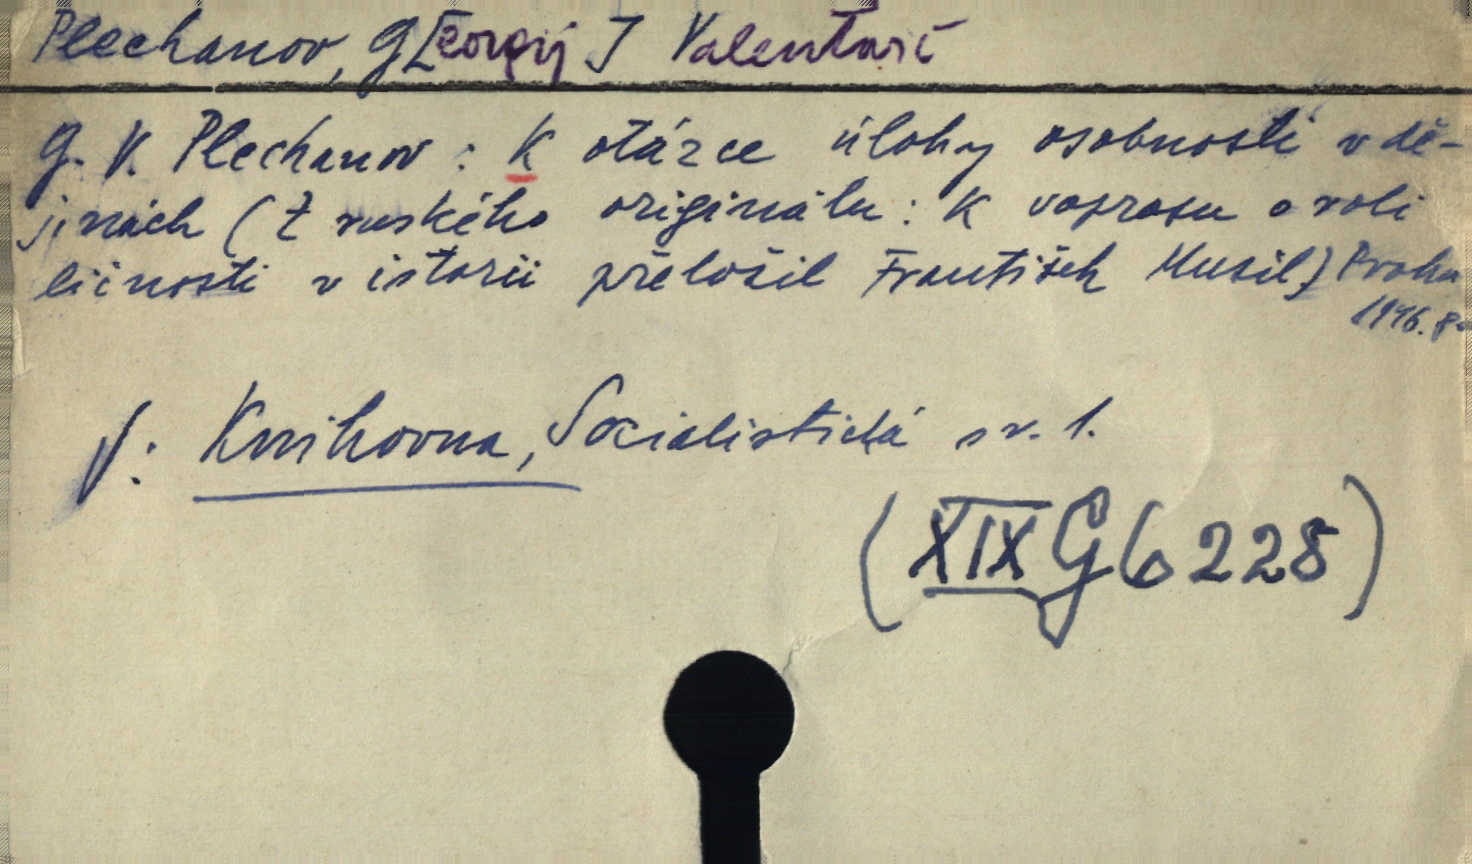 Plechanov, G[eorgij] Valentinovič
G. V. Plechanov: K otázce úlohy osobnosti v dě-
jinách (Z ruského originálu: K voprosu o roli
ličnosti v istorii přeložil František Musil) Praha
1946. 8°
V: Knihovna, Socialistická sv. 1.
(XIX G 6228)